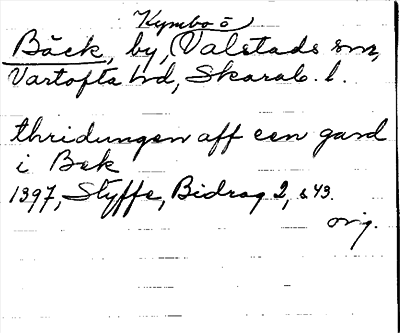 Kymbo ö
Bäck, by, (Valstads sn,
Vartofta hd, Skarab. l.
thridungen aff een gard
i Bæk
1397, Styffe, Bidrag 2, s 43.
orig.